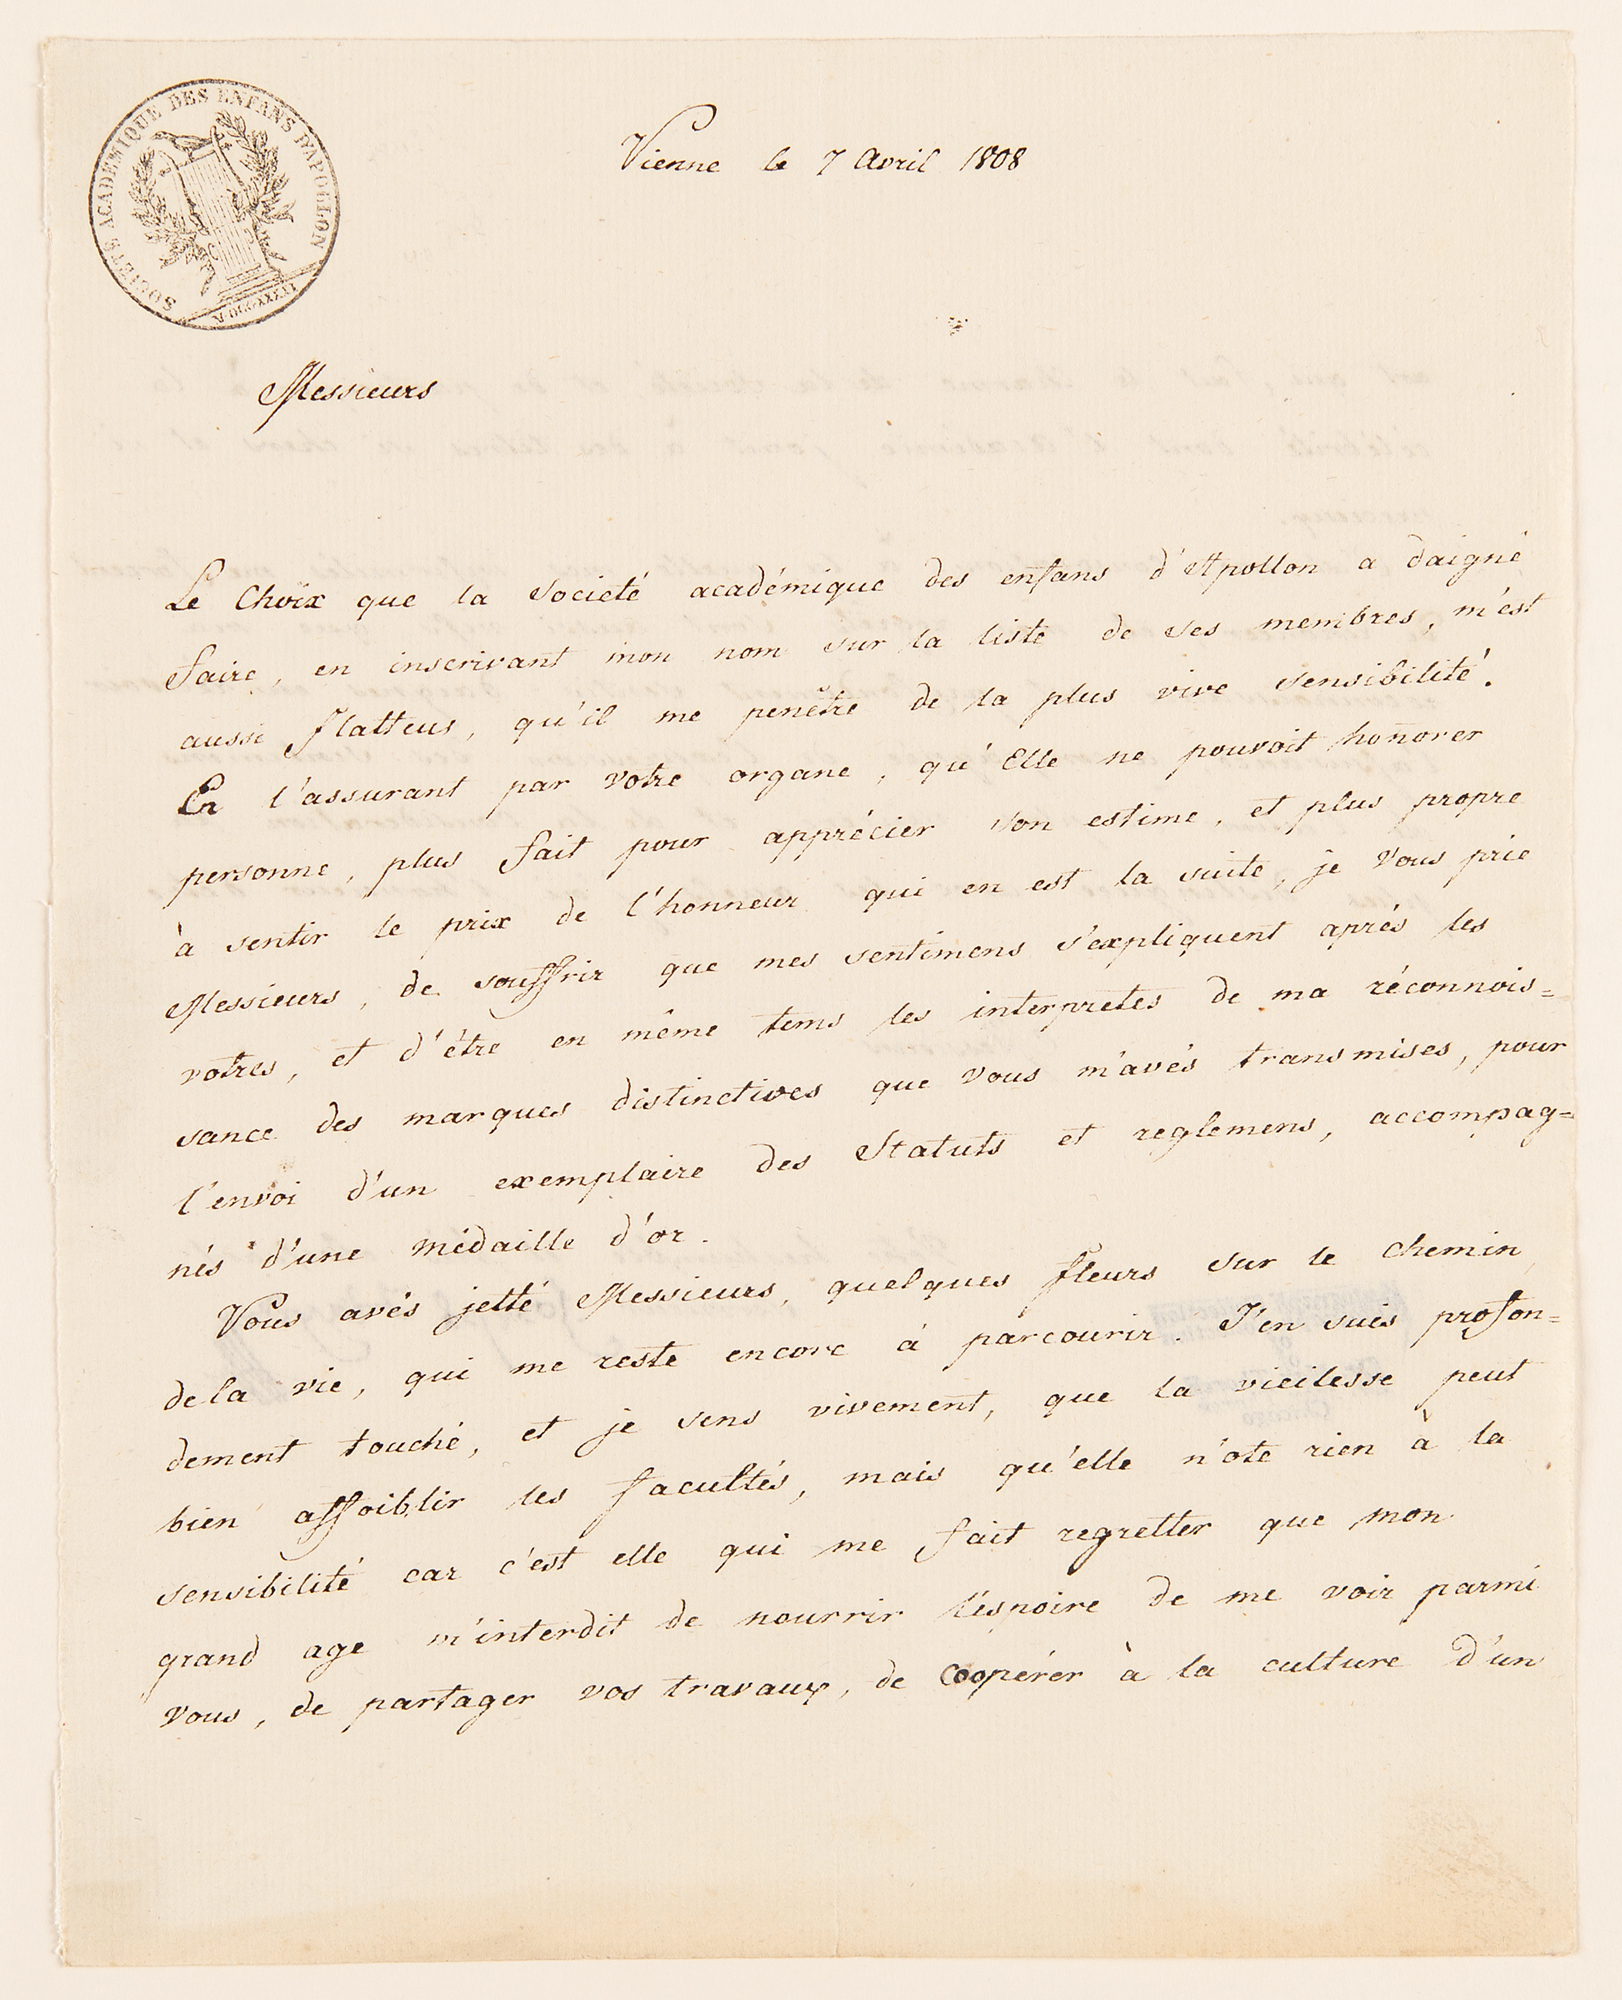 SOCIÉTÉ ACADÉMIQUE DES ENFANS D'APOLLON
Vienne le 7 Avril 1808
Messieurs
Le Choix que la Societé académique des enfans d'Apollon a daigné
faire, en inscrivant mon nom sur la liste de ses membres, m'est
aussi flatteus, qu'il me penêtre de la plus vive sensibilité.
En l'assurant par votre organe, qu'Elle ne pouvoit honorer
personne, plus fait pour apprécier son estime, et plus propre
à sentir le prix de l'honneur qui en est la suite, je Vous prie
Messieurs, de souffrir que mes sentimens s'expliquent aprés les
votres, et d'étre en même tems les interpretes de ma réconnois=
sance des marques distinctives que vous m'avés transmises, pour
l'envoi d'un exemplaire des Statuts et reglemens, accompag=
nés d'une médaille d'or.
Vous avés jetté Messieurs, quelques fleurs sur le chemin
dela vie, qui me reste encore à parcourir. J'en suis profon=
dement touché, et je sens vivement, que la vieilesse peut
bien affoiblir les facultés, mais qu'elle n'ote rien à la
sensibilité car c'est elle qui me fait regretter que mon
grand age m'interdit de nourrir l'espoire de me voir parmi
vous, de partager vos travaux, de coopérer à la culture d'un